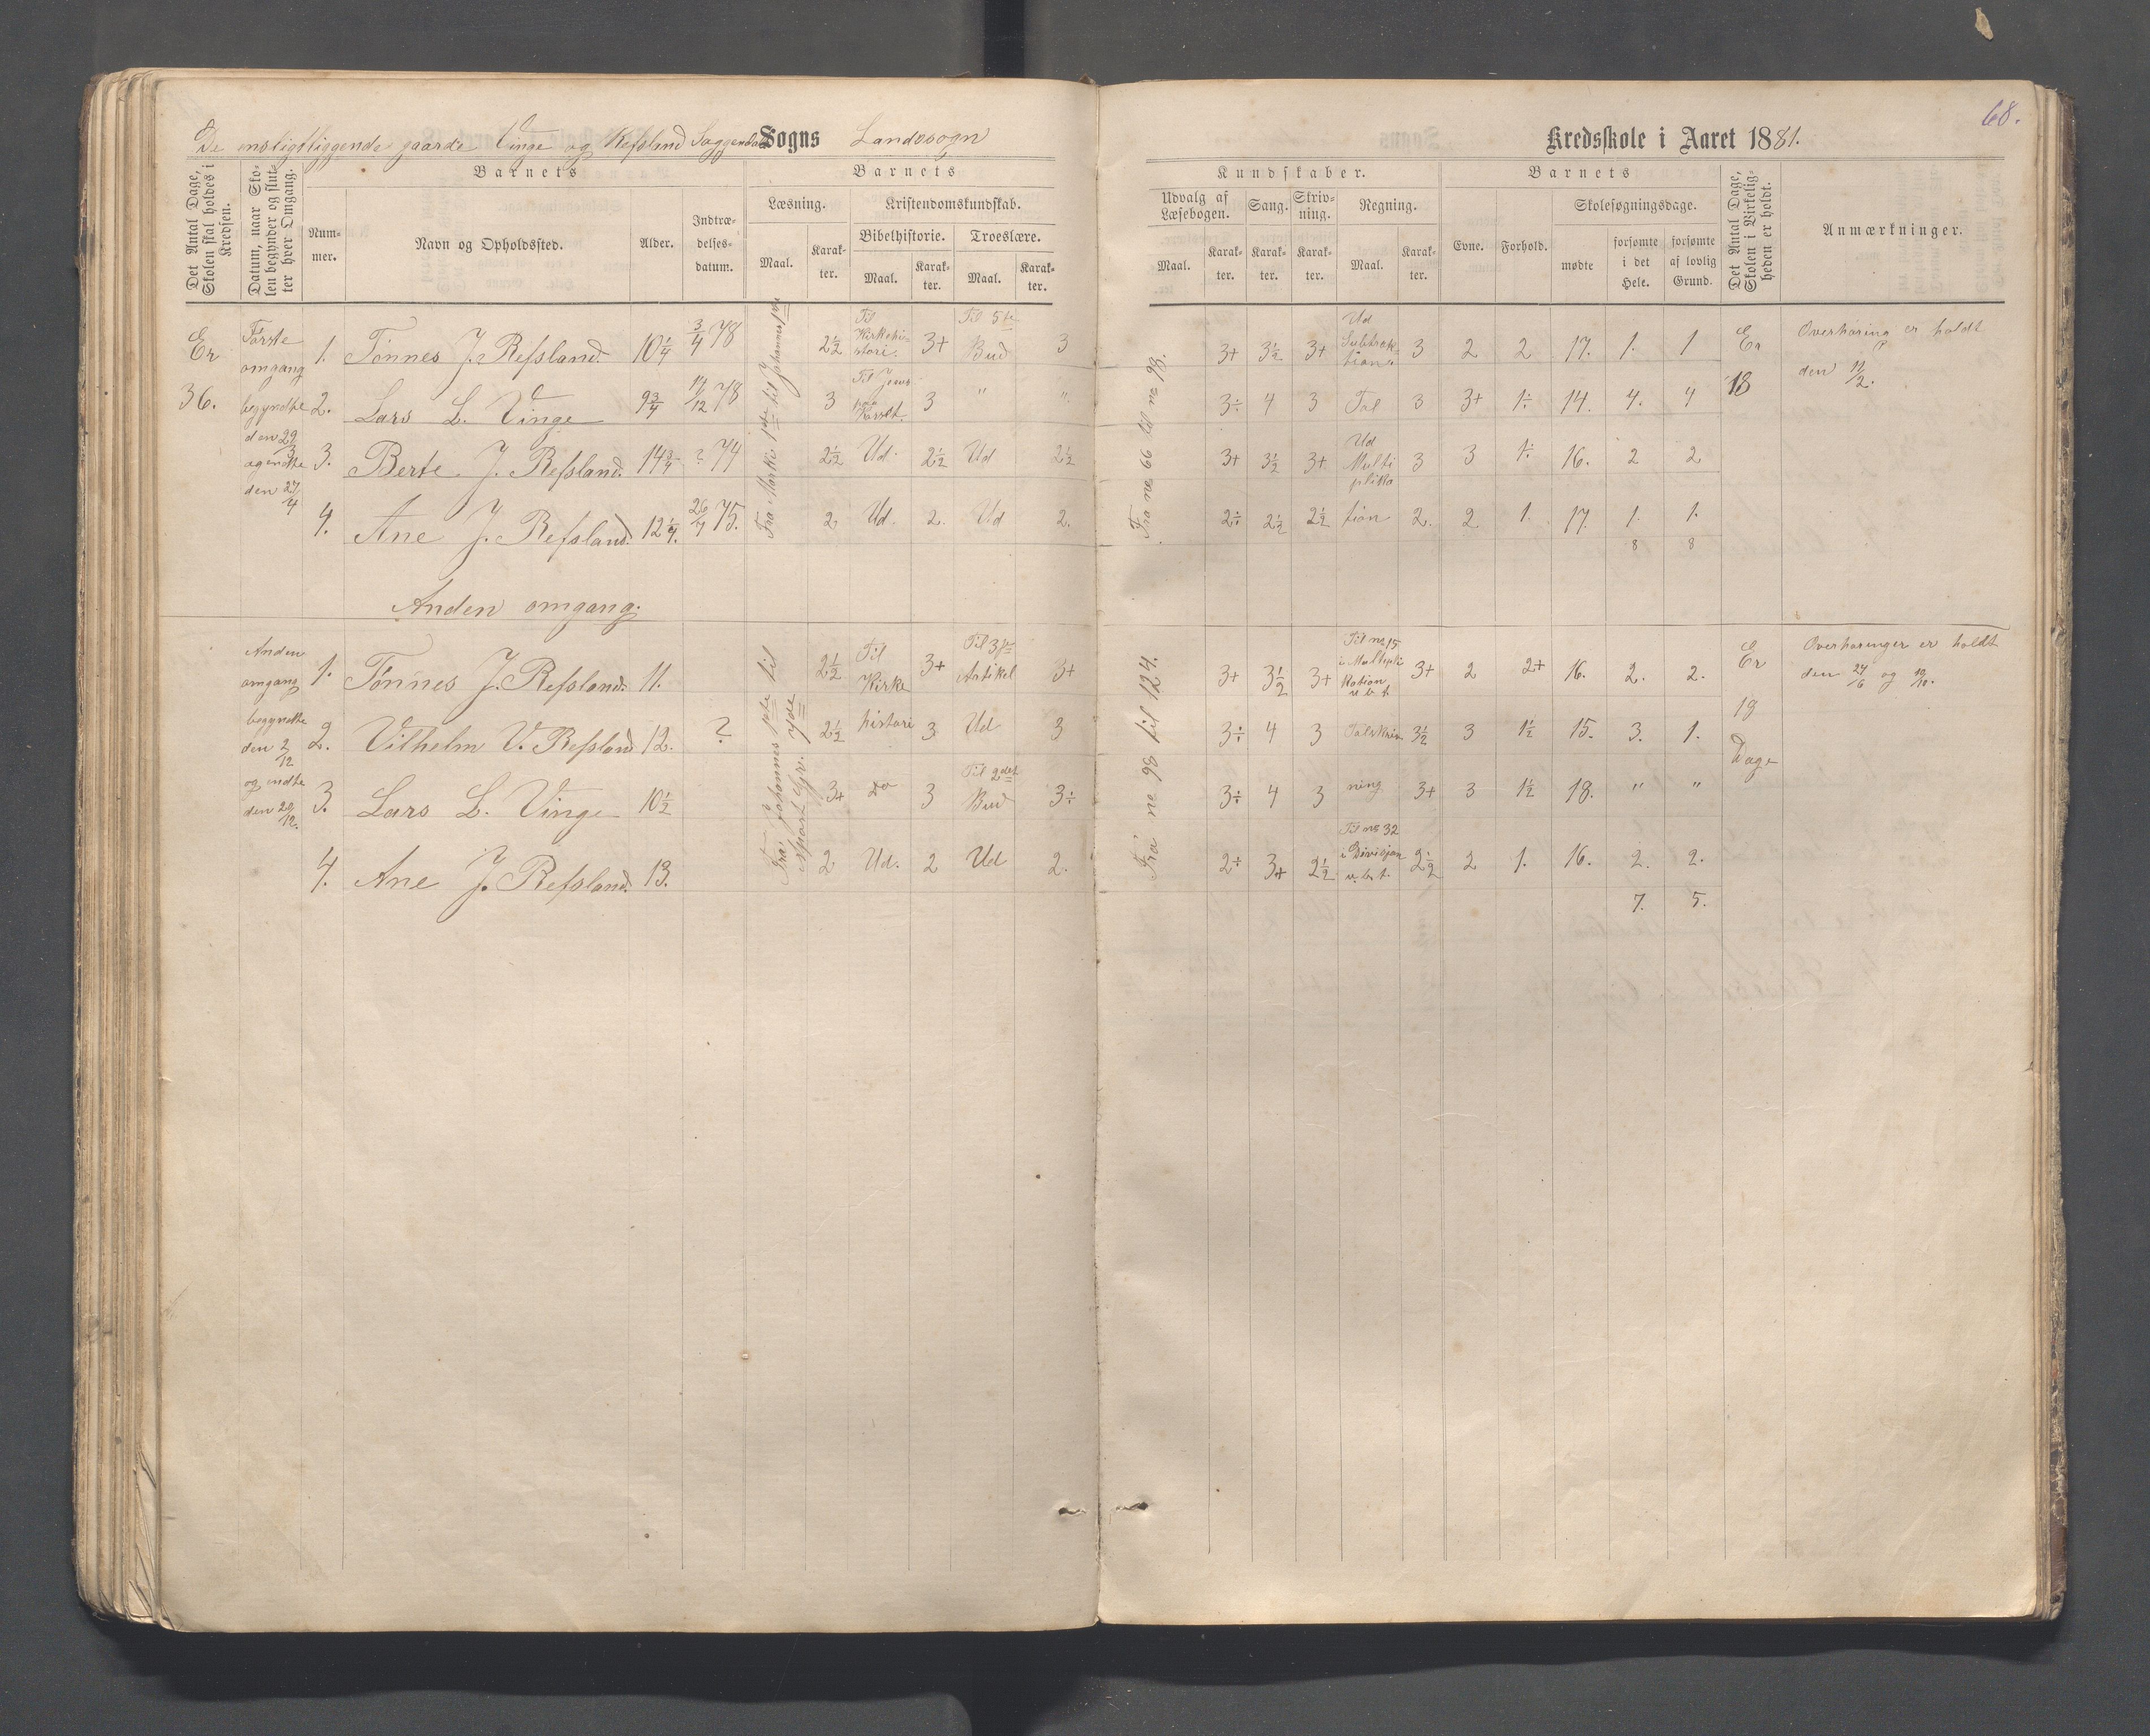 68.
De ensligtliggende gaarde Vinge og Refsland Soggendals Sogns Landssogn Kredsskole i Aaret 1881.
Det Antal Dage, Skolen skal holdes i Kredsen.
Datum, naar Skolen begynder og slutter hver Omgang.
Barnets
Nummer.
Navn og Opholdssted.
Alder.
Indtrædelsesdatum.
Barnets
Læsning.
Maal.
Karakter.
Kristendomskundskab.
Bibelhistorie.
Maal.
Karakter.
Troeslære.
Maal.
Karakter.
Kundskaber.
Udvalg af Læsebogen.
Maal.
Karakter.
Sang.
Karakter.
Skrivning.
Karakter.
Regning.
Maal.
Karakter.
Barnets
Evne.
Forhold.
Skolesøgningsdage.
mødte
forsømte i det Hele.
forsømte af lovlig Grund.
Det Antal Dage, Skolen i Virkeligheden er holdt.
Anmærkninger.
Er 36.
Første omgang begyndte den 29/3 og endte den 27/4
Fra Markus 1ste til Johannes 1ste
Fra no 66 til no 98.
1. Tønnes J. Refsland. 10 1/4 3/4 78 2 1/2 Til Kirkehistori. 3+ Til 5te Bud 3 3+ 3 1/2 3+ Ud Subtraktion 3 2 2 17. 1. 1
2. Lars L. Vinge 9 3/4 17/12 78 3 Til Jesus 3 " " 3÷ 4 3 Tal 3 3+ 1÷ 14. 4. 4
3. Berte J. Refsland. 14 3/4 ? 74 2 1/2 Ud. 2 1/2 Ud 2 1/2 3+ 3 1/2 3+ Ud Multiplika 3 3 1÷ 16. 2 2
4. Ane J. Refsland. 12 1/4. 26/4 75. 2 Ud. 2. Ud 2. 2÷ 2 1/2 2 1/2 tion 2. 2. 1. 17. 1. 1.
8 8
Er 18
Overhøring er holdt
den 11/2.
Anden omgang.
Anden omgang begyndte den 2/12 og endte den 20/12.
Fra Johannes 1ste til
Fra no 98 til 124.
1. Tønnes J. Refsland. 11. 2 1/2 Til Kirke 3+ Til 3die Artikel 3+ 3+ 3 1/2 3+ Til no 15 i Multiplikation u.b.t. 3+ 2 2+ 16. 2. 2.
2. Vilhelm V. Refsland 12. ? 2 1/2 histori 3 Ud 3 3÷ 4 3 Talskriv 3 1/2 3 1 1/2 15. 3. 1.
3. Lars L. Vinge 10 1/2 3+ do 3 Til 2det Bud 3÷ 3÷ 4 3 ning 3+ 3 1 1/2 18. " "
4. Ane J. Refsland. 13. 2 Ud. 2 Ud 2. 2÷ 3+ 2 1/2 Til no 32 i Divisjon u.b.t. 2 1/2 2 1. 16. 2. 2.
7. 5.
Er 18 Dage
Overhøringer er holdt
den 27/6 og 10/10.